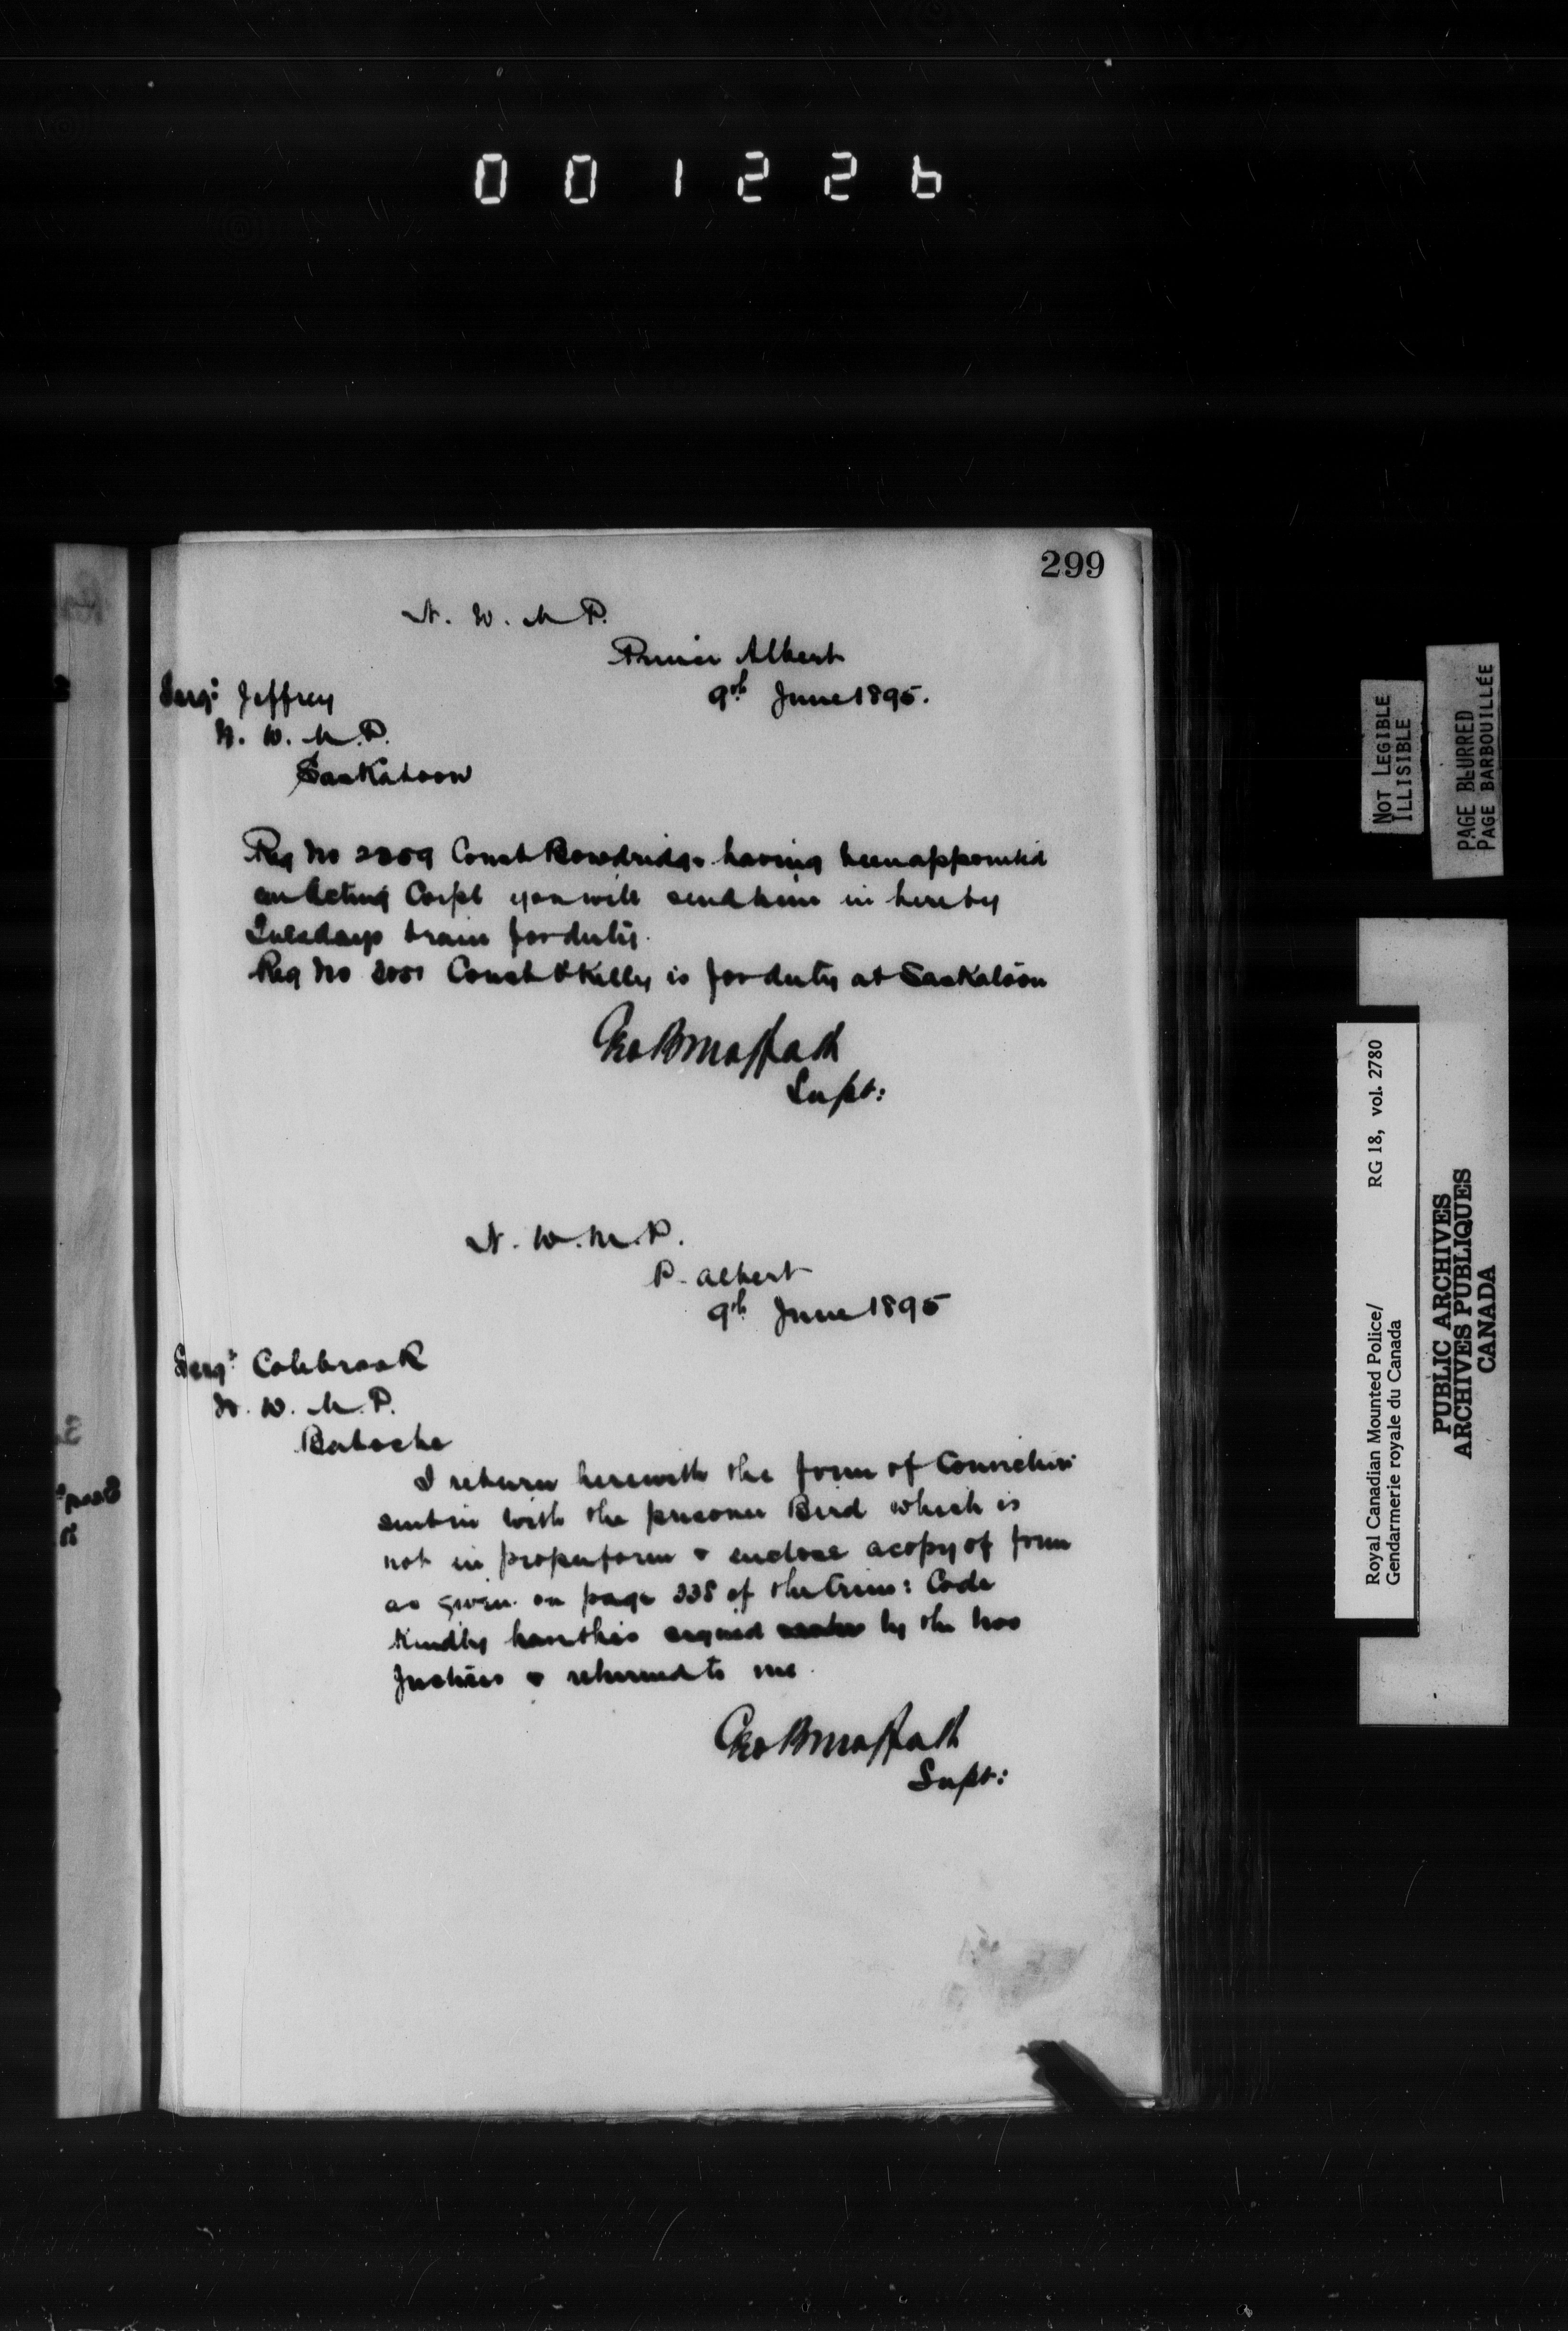 001226
299
N. W. M. P.
Prince Albert
9th June 1895.
Sergt Jeffrey
N. W. M. P.
Saskatoon
Reg No Const Bowdridge having been appointed
an Acting Corpl you will send him in here by
Tuesdays train for duty.
Reg No Const O'Kelly is for duty at Saskatoon
Geo B Moffatt
Supt:
N. W. M. P.
P. Albert
9th June 1895
Sergt Colebrook
N. W. M. P.
Batoche
I return herewith the form of Conviction
sent in with the prisoner Bird which is
not in proper form & enclose a copy of form
as given on page 338 of the Crim: Code
Kindly have this signed by the two
Justices & returned to me.
Geo B Moffatt
Supt:
NOT LEGIBLE
ILLISIBLE
PAGE BLURRED
PAGE BARBOUILLÉE
Royal Canadian Mounted Police/ RG 18, vol. 2780
Gendarmerie royale du Canada
PUBLIC ARCHIVES
ARCHIVES PUBLIQUES
CANADA